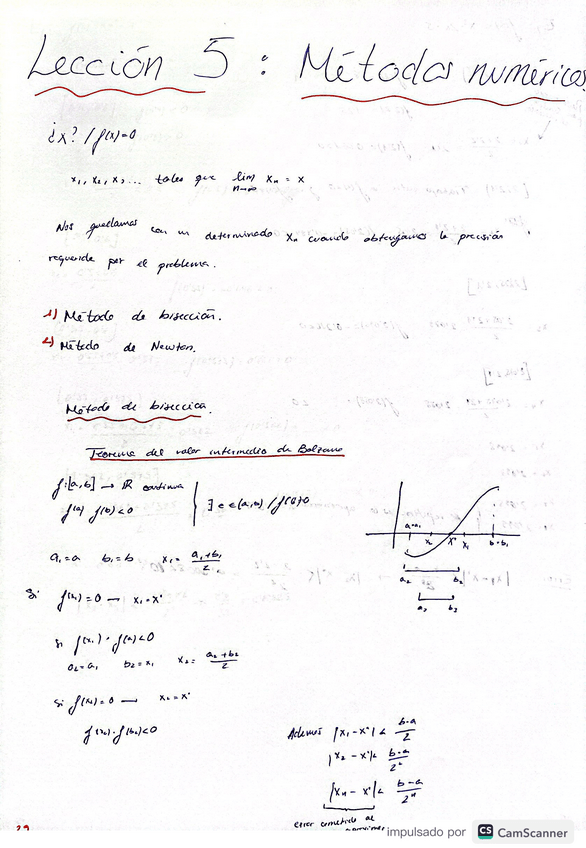 Lección 5 : Métodos numéricos
¿x? / f(x)=0
x₁, x₂, x₃ ... tales que lim xₙ = x
n→∞
Nos quedamos con un determinado xₙ cuando obtengamos la precisión
requerida por el problema.
1) Método de bisección.
2) Método de Newton.
Método de bisección.
Teorema del valor intermedio de Bolzano
f:[a,b] → ℝ continua
f(a) f(b) < 0
∃ c ∈ (a,b) / f(c)=0
a₁=a b₁=b x₁= (a₁+b₁)/2
Si f(x₁) = 0 → x₁=x*
si f(x₁) · f(a) < 0
a₂=a₁ b₂=x₁ x₂= (a₂+b₂)/2
si f(x₂)=0 → x₂=x*
f(x₂)·f(b₂)<0
a=a₁ x₂ x* x₁ b=b₁
a₂ b₂
a₃ b₃
Además |x₁-x*| < (b-a)/2
|x₂-x*| < (b-a)/2²
|xₙ-x*| < (b-a)/2ⁿ
error cometido al
29
impulsado por CS CamScanner